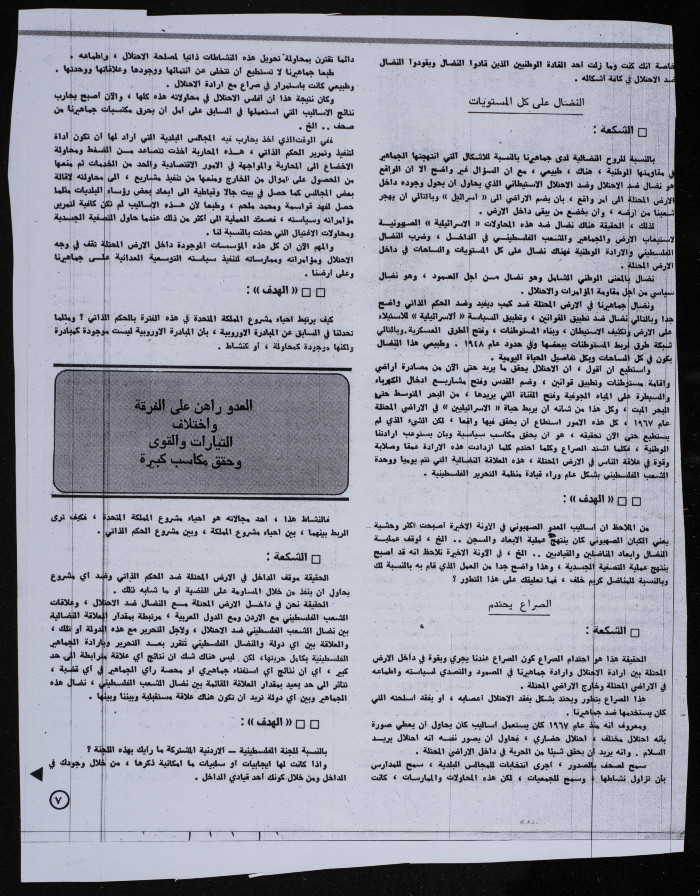 خاصة انك كنت وما زلت احد القادة الوطنيين الذين قادوا النضال ويقودوا النضال
ضد الاحتلال في كافة أشكاله .
النضال على كل المستويات
□ الشكعة :
بالنسبة للروح النضالية لدى جماهيرنا بالنسبة للاشكال التي انتهجتها الجماهير
في مقاومتها الوطنية ، هناك ، طبيعي ، مع ان السؤال غير واضح الا ان الواقع
هو نضال ضد الاحتلال وضد الاحتلال الاستيطاني الذي يحاول ان يحول وجوده داخل
الارض المحتلة الى أمر واقع ، بأن يضم الاراضي الى « اسرائيل » وبالتالي ان يهجر
شعبنا من ارضه ، وان يخضع من يبقى داخل الارض .
لذلك ، الحقيقة هناك نضال ضد هذه المحاولات « الاسرائيلية » الصهيونية
لاستيعاب الارض والجماهير والشعب الفلسطيني في الداخل ، وضرب النضال
الفلسطيني والارادة الوطنية فهناك نضال على كل المستويات والساحات في داخل
الارض المحتلة .
نضال بالمعنى الوطني الشامل وهو نضال من اجل الصمود ، وهو نضال
سياسي من اجل مقاومة المؤامرات والاحتلال .
ونضال جماهيرنا في الارض المحتلة ضد كمب ديفيد وضد الحكم الذاتي واضح
جدا وبالتالي نضال ضد تطبيق القوانين ، وتطبيق السياسة « الاسرائيلية » للاستيلاء
على الارض وتكثيف الاستيطان ، وبناء المستوطنات ، وفتح الطرق العسكرية، وبالتالي
شبكة طرق تربط المستوطنات ببعضها وفي حدود عام ١٩٤٨ . وطبيعي هذا النضال
يكون في كل الساحات وبكل تفاصيل الحياة اليومية .
واستطيع ان اقول ، ان الاحتلال يحقق ما يريد حتى الآن من مصادرة اراضي
واقامة مستوطنات وتطبيق قوانين ، وضم القدس وفتح مشاريع ادخال الكهرباء
والسيطرة على المياه الجوفية وفتح القناة التي يريدها ، من البحر المتوسط حتى
البحر الميت ، وكل هذا من شأنه ان يربط حياة « الاسرائيليين » في الاراضي المحتلة
عام ١٩٦٧ ، كل هذه الامور استطاع ان يحقق فيها واقعا ، لكن الشيء الذي لم
يستطيع حتى الآن تحقيقه ، هو ان يحقق مكاسب سياسية وبان يستوعب ارادتنا
الوطنية ، فكلما اشتد الصراع وكلما احتدم كلما ازدادت هذه الارادة عمقا وصلابة
وقوة في علاقة الناس في الارض المحتلة ، هذه العلاقة النضالية التي تتم يوميا ووحدة
الشعب الفلسطيني بشكل عام وراء قيادة منظمة التحرير الفلسطينية .
□ □ « الهدف » :
من الملاحظ ان اساليب العدو الصهيوني في الاونة الاخيرة أصبحت اكثر وحشية
يعني الكيان الصهيوني كان ينتهج عملية الابعاد والسجن .. الخ ، لوقف عملية
النضال وابعاد المناضلين والقياديين .. الخ ، في الاونة الاخيرة نلاحظ انه قد اصبح
ينتهج عملية التصفية الجسدية ، وهذا واضح جدا من العمل الذي قام به بالنسبة لك
وبالنسبة للمناضل كريم خلف ، فما تعليقك على هذا التطور ؟
الصراع يحتدم
□ الشكعة :
الحقيقة هذا هو احتدام الصراع كون الصراع عندنا يجري وبقوة في داخل الارض
المحتلة بين ارادة الاحتلال وارادة جماهيرنا في الصمود والتصدي لسياسته واطماعه
في الاراضي المحتلة وخارج الاراضي المحتلة .
هذا الصراع يتطور ويحتد بشكل يفقد الاحتلال اعصابه ، أو يفقد اسلحته التي
كان يستخدمها ضد جماهيرنا .
ومعروف انه منذ عام ١٩٦٧ كان يستعمل اساليب كان يحاول ان يعطي صورة
بأنه احتلال مختلف ، احتلال حضاري ، يحاول ان يصور نفسه انه احتلال يريد
السلام . وانه يريد ان يحقق شيئا من الحرية في داخل الاراضي المحتلة .
سمح لصحف بالصدور ، اجرى انتخابات للمجالس البلدية ، سمح للمدارس
بأن تزاول نشاطها ، وسمح للجمعيات ، لكن هذه المحاولات والممارسات ، كانت
دائما تقترن بمحاولة تحويل هذه النشاطات ذاتيا لمصلحة الاحتلال ، واطماعه .
طبعا جماهيرنا لا تستطيع أن تتخلى عن انتمائها ووجودها وعلاقاتها ووحدتها .
وطبيعي كانت باستمرار في صراع مع ارادة الاحتلال .
وكان نتيجة هذا أن أفلس الاحتلال في محاولاته هذه كلها ، والآن أصبح يحارب
نتائج الاساليب التي استعملها في السابق على أمل أن يحرق مكتسبات جماهيرنا من
صحف .. الخ .
ففي الوقت الذي أخذ يحارب فيه المجالس البلدية التي أراد لها أن تكون أداة
لتنفيذ وتمرير الحكم الذاتي ، هذه المحاربة أخذت تتصاعد من الضغط ومحاولة
الاخضاع الى المحاربة والمواجهة في الامور الاقتصادية والحد من الخدمات ثم منعها
من الحصول على اموال من الخارج ومنعها من تنفيذ مشاريع ، الى محاولته لاقالة
بعض المجالس كما حصل في بيت جالا وقباطية الى ابعاد بعض رؤساء البلديات مثلما
حصل لفهد قواسمة ومحمد ملحم ، وطبعا لان هذه الاساليب لم تكن كافية لتمرير
مؤامراته وسياسته ، فصعّد العملية الى أكثر من ذلك عندما حاول التصفية الجسدية
ومحاولات الاغتيال التي حدثت بالنسبة لنا .
والمهم الآن ان كل هذه المؤسسات الموجودة داخل الارض المحتلة تقف في وجه
الاحتلال ومؤامراته وممارساته لتنفيذ سياسته التوسعية العدائية على جماهيرنا
وعلى ارضنا .
□ □ « الهدف » :
كيف يرتبط احياء مشروع المملكة المتحدة في هذه الفترة بالحكم الذاتي ؟ ومثلما
تحدثنا في السابق عن المبادرة الاوروبية ، بأن المبادرة الاوروبية ليست موجودة كمبادرة
ولكنها موجودة كمحاولة ، أو كنشاط .
العدو راهن على الفرقة
واختلاف
التيارات والقوى
وحقق مكاسب كبيرة
فالنشاط هذا ، أحد مجالاته هو احياء مشروع المملكة المتحدة ، فكيف ترى
الربط بينهما ، بين احياء مشروع المملكة ، وبين مشروع الحكم الذاتي .
□ الشكعة :
الحقيقة موقف الداخل في الارض المحتلة ضد الحكم الذاتي وضد أي مشروع
يحاول ان ينفذ من خلال المساومة على القضية أو ما شابه ذلك .
الحقيقة نحن في داخل الارض المحتلة مع النضال ضد الاحتلال ، وعلاقات
الشعب الفلسطيني مع الاردن ومع الدول العربية ، مرتبطة بمقدار العلاقة النضالية
بين نضال الشعب الفلسطيني ضد الاحتلال ، ولاجل التحرير مع هذه الدولة أو تلك ،
والعلاقة بين أي دولة والنضال الفلسطيني تتقرر بعد التحرير وبارادة الجماهير
الفلسطينية بكامل حريتها، لكن ليس هناك شك ان نتائج أي علاقة مترابطة الى حد
كبير ، أي أن نتائج أي استفتاء جماهيري أو محصة رأي الجماهير في أي قضية ،
تتأثر الى حد بعيد بمقدار العلاقة القائمة بين نضال الشعب الفلسطيني ، نضال هذه
الجماهير وبين أي دولة نريد أن تكون هناك علاقة مستقبلية وبيننا وبينها .
□ □ « الهدف » :
بالنسبة للجنة الفلسطينية ــ الاردنية المشتركة ما رأيك بهذه اللجنة ؟
واذا كانت لها ايجابيات أو سلبيات ما امكانية ذكرها ، من خلال وجودك في
الداخل ومن خلال كونك أحد قيادي الداخل .
٧